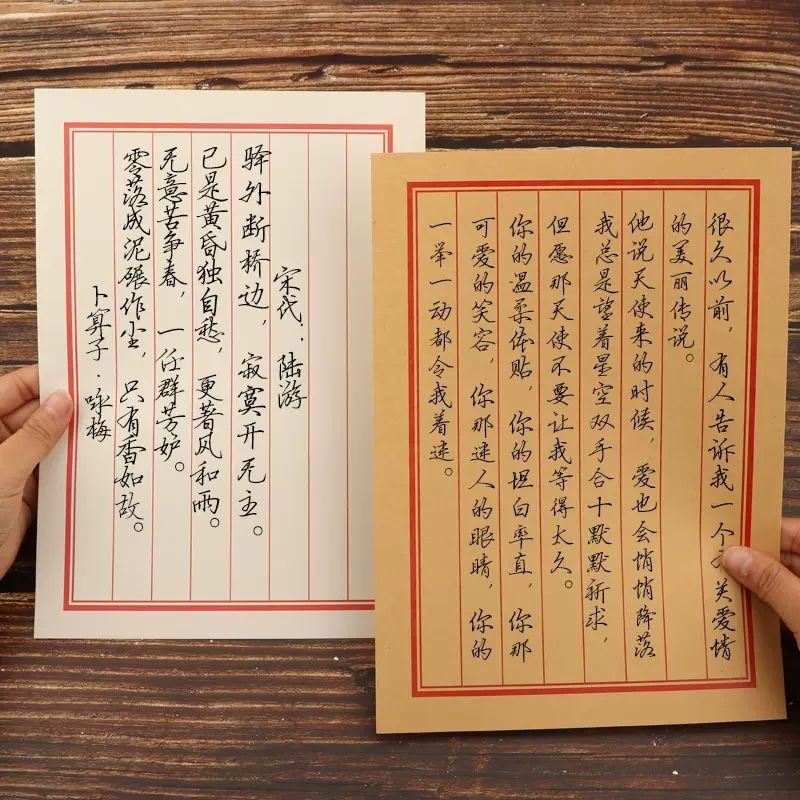 宋代·陆游
驿外断桥边，寂寞开无主。
已是黄昏独自愁，更著风和雨。
无意苦争春，一任群芳妒。
零落成泥碾作尘，只有香如故。
卜算子·咏梅
很久以前，有人告诉我一个有关爱情
的美丽传说。
他说天使来的时候，爱也会悄悄降落
我总是望着星空双手合十默默祈求，
但愿那天使不要让我等得太久。
你的温柔体贴，你的坦白率直，你那
可爱的笑容，你那迷人的眼睛，你的
一举一动都令我着迷。